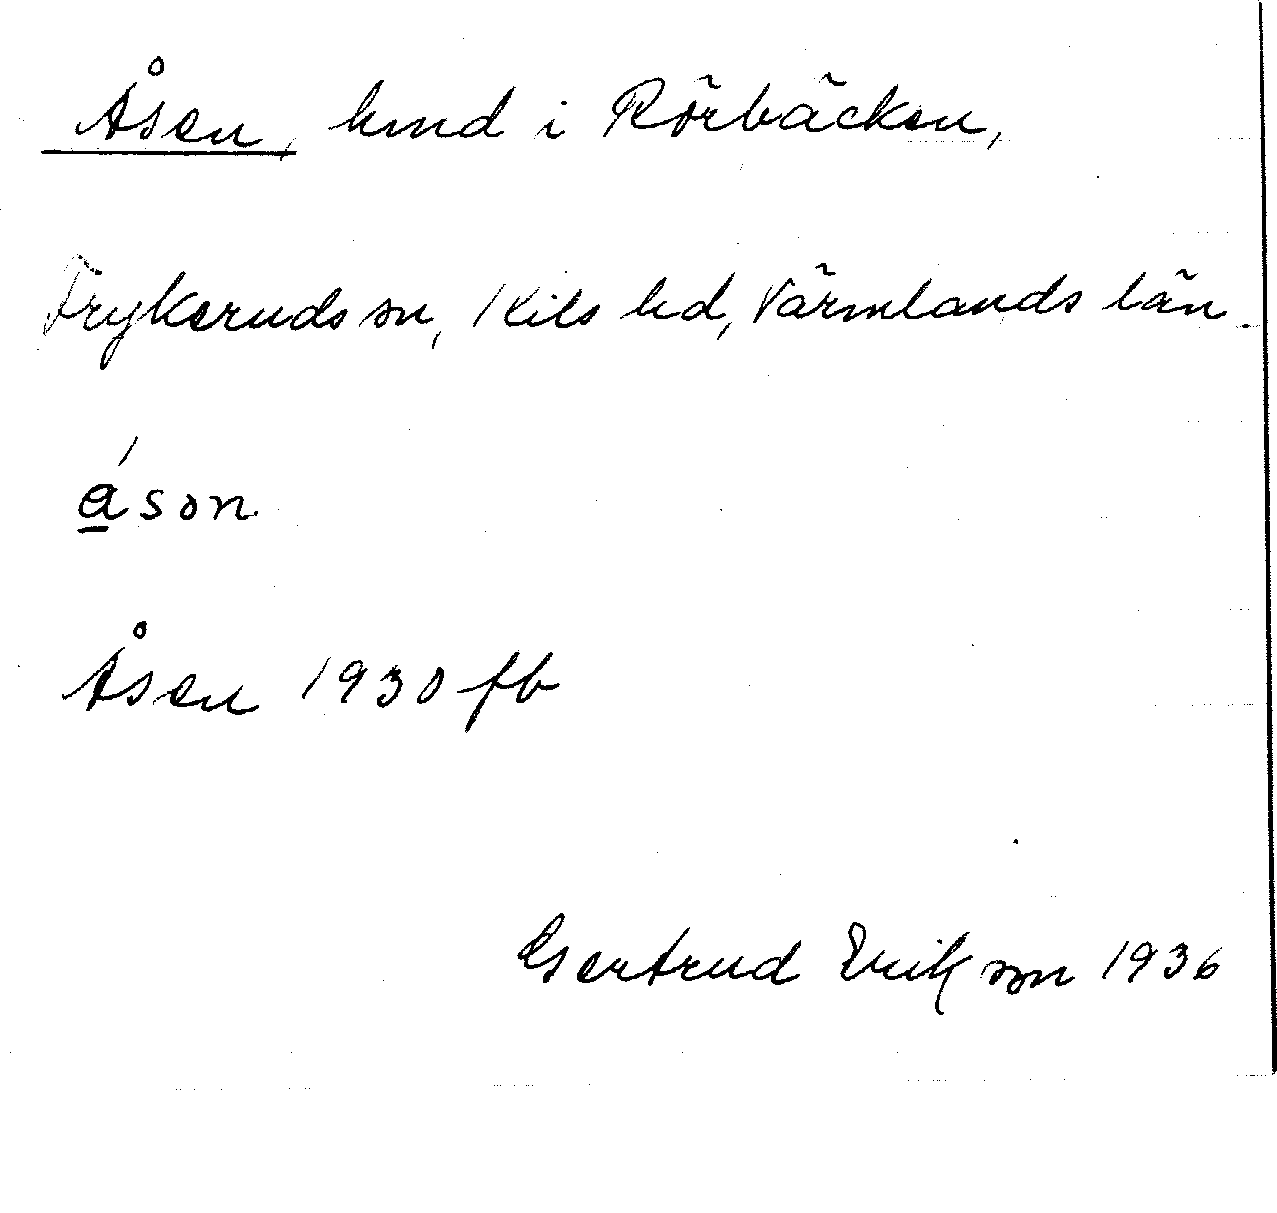 Åsen, hmd i Rörbäcken,
Frykeruds sn, Kils hd, Värmlands län.
ǻson
Åsen 1930 fb
Gertrud Erikson 1936